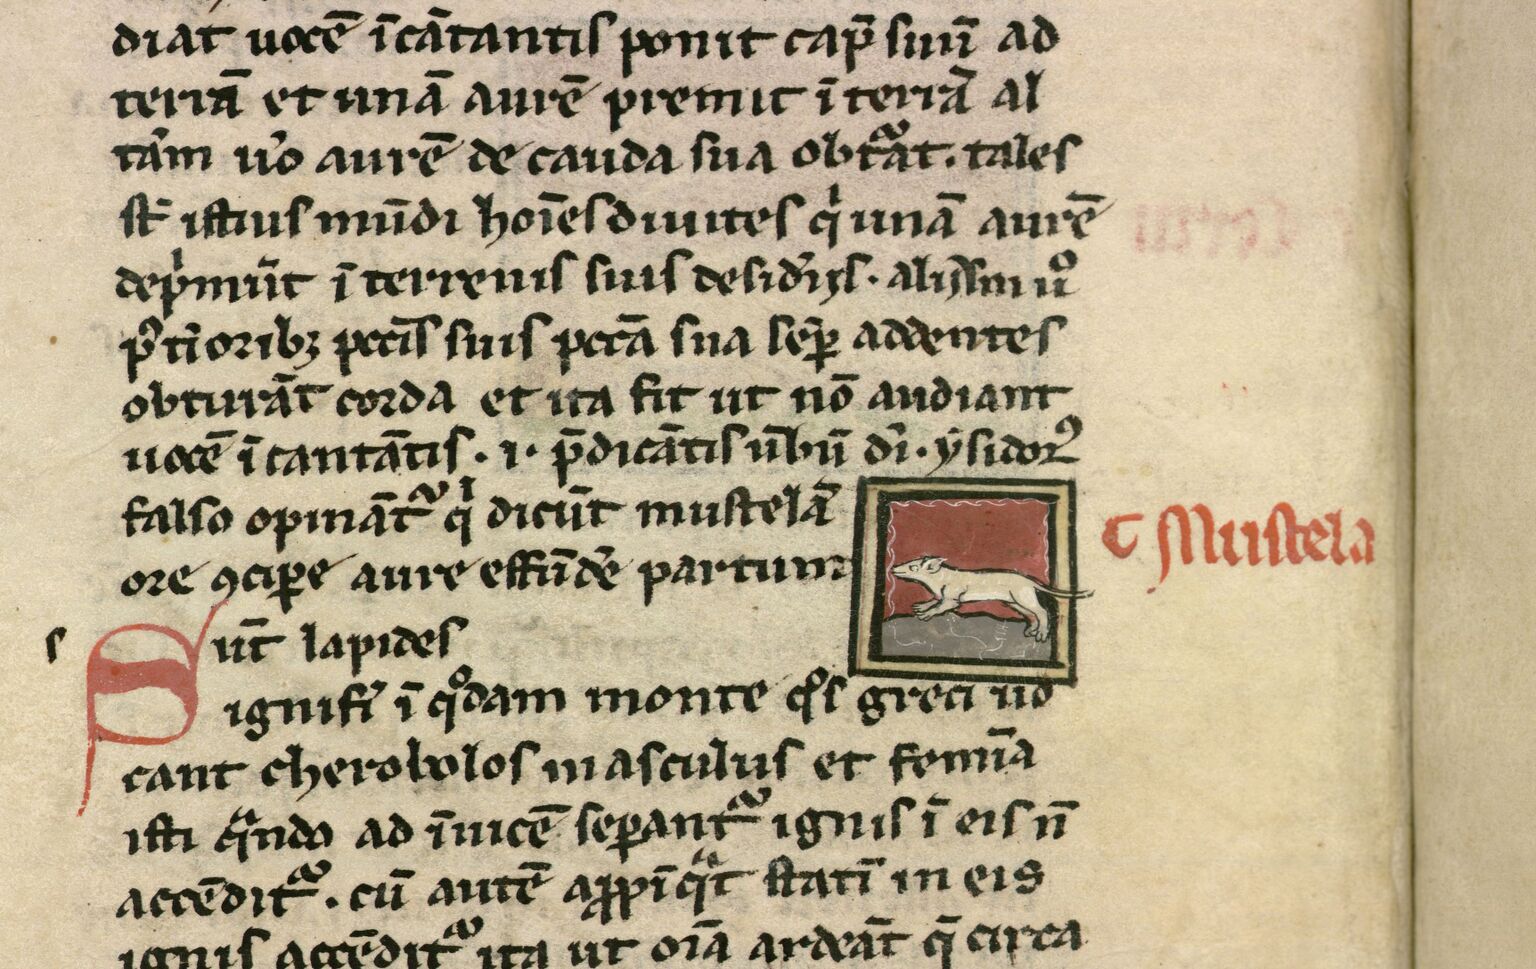 diat uocē īcātantis ponit cap̄ suū ad
terrā et unā aurē premit ī terrā al
tam̄ u̾o aurē de cauda sua obt̾at. tales
st̄ istius mūdi hoīes diuites qͥ unā aurē
dep̾mūt ī terrenis suis desid̾ijs. alijs
p̾tioribꝫ pcc̄is suis pcc̄ā sua sēꝑ addentes
obturāt corda et ita fit ut nō audiant
uocē īcantātis. i. p̄dicātis ūbū dī. ysidorꝰ
falso opināt̾ qͥ dicūt mustelā
ore ꝯcipe aure effūde̾ partum
¶ Mustela
s
Sūt lapides
ignif̾i ī qͦdam monte qͦs greci uo
cant cherobolos masculus et femīa
isti qͣndo ad īuicē seꝑant̾ ignis ī eis n̄
accēdit̾. cū autē aꝓpīqͣt statī in eis
ignis accēdit̾ ita ut oīa ardeāt q̄ circa